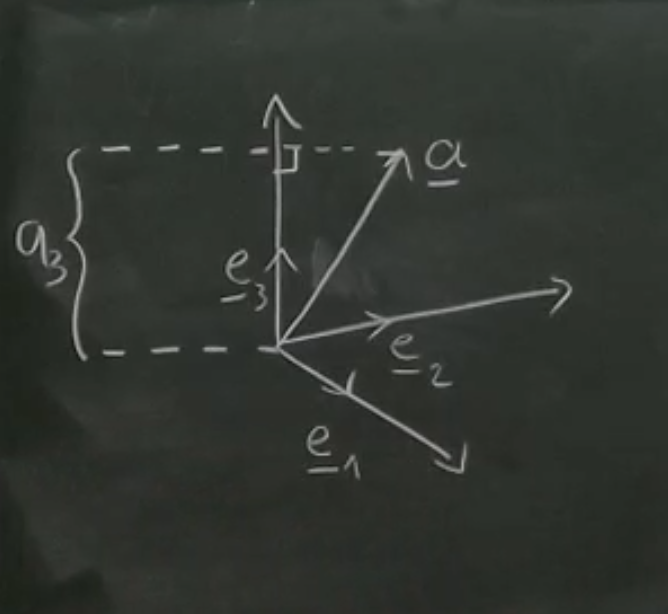 a
a₃
e₃
e₂
e₁